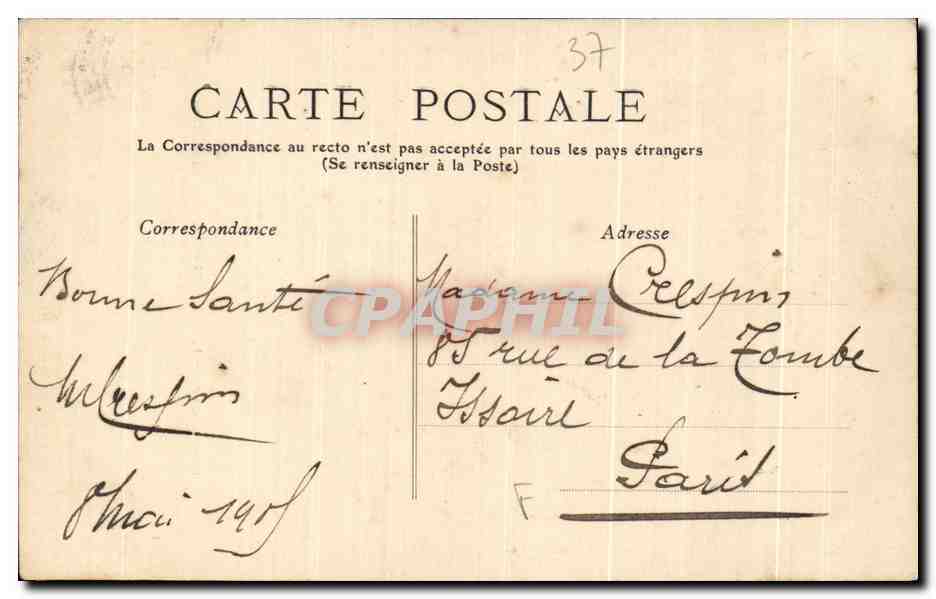 37
CARTE POSTALE
La Correspondance au recto n'est pas acceptée par tous les pays étrangers
(Se renseigner à la Poste)
Correspondance
Bonne Santé
MCrespin
8 Mai 1905
Adresse
Madame Crespin
85 rue de la Tombe
Issoire
Paris
F
CPAPHIL